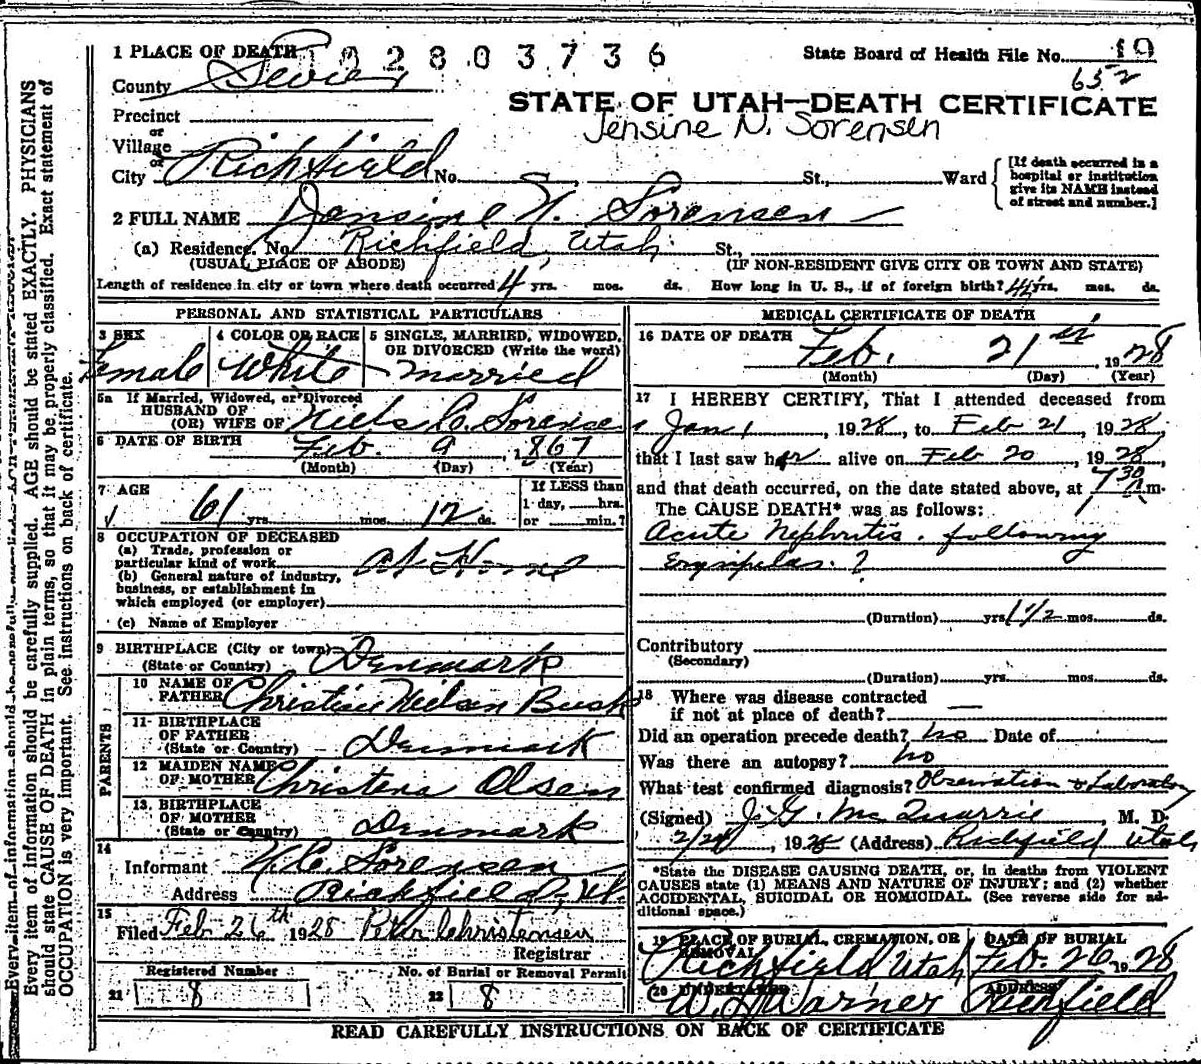 1 PLACE OF DEATH
102803736
State Board of Health File No. 19
County Sevier
652
STATE OF UTAH—DEATH CERTIFICATE
Jensine N. Sorensen
Precinct
or
Village
or
City Richfield No. St., Ward
[If death occurred in a hospital or institution give its NAME instead of street and number.]
2 FULL NAME Jensine N. Sorensen
(a) Residence, No. Richfield, Utah St.,
(USUAL PLACE OF ABODE) (IF NON-RESIDENT GIVE CITY OR TOWN AND STATE)
Length of residence in city or town where death occurred 4 yrs. mos. ds. How long in U. S., if of foreign birth? 44 yrs. mos. ds.
PERSONAL AND STATISTICAL PARTICULARS
3 SEX
Female
4 COLOR OR RACE
White
5 SINGLE, MARRIED, WIDOWED, OR DIVORCED (Write the word)
Married
5a If Married, Widowed, or Divorced
HUSBAND OF
(OR) WIFE OF Niels C. Sorensen
6 DATE OF BIRTH Feb. 9, 1867
(Month) (Day) (Year)
7 AGE
61 yrs. mos. 12 ds.
If LESS than
1 day, hrs.
or min.?
8 OCCUPATION OF DECEASED
(a) Trade, profession or
particular kind of work At Home
(b) General nature of industry,
business, or establishment in
which employed (or employer)
(c) Name of Employer
9 BIRTHPLACE (City or town)
(State or Country) Denmark
PARENTS
10 NAME OF
FATHER Christian Nielsen Busk
11 BIRTHPLACE
OF FATHER
(State or Country) Denmark
12 MAIDEN NAME
OF MOTHER Christena Olsen
13 BIRTHPLACE
OF MOTHER
(State or Country) Denmark
14
Informant N.C. Sorensen
Address Richfield, Ut.
15
Filed Feb 26th 1928 Peter Christensen
Registrar
Registered Number
21 8
No. of Burial or Removal Permit
22 8
MEDICAL CERTIFICATE OF DEATH
16 DATE OF DEATH Feb. 21st, 1928
(Month) (Day) (Year)
17 I HEREBY CERTIFY, That I attended deceased from
Jan 1, 1928, to Feb 21, 1928,
that I last saw her alive on Feb 20, 1928,
and that death occurred, on the date stated above, at 7 30 A m.
The CAUSE DEATH* was as follows:
Acute Nephritis. following
Erysipelas. ?
(Duration) yrs. 1 1/2 mos. ds.
Contributory
(Secondary)
(Duration) yrs. mos. ds.
18 Where was disease contracted
if not at place of death? —
Did an operation precede death? no Date of
Was there an autopsy? no
What test confirmed diagnosis? Observation & Laboratory
(Signed) J. G. McQuarrie, M. D.
1928 (Address) Richfield Utah
*State the DISEASE CAUSING DEATH, or, in deaths from VIOLENT
CAUSES state (1) MEANS AND NATURE OF INJURY; and (2) whether
ACCIDENTAL, SUICIDAL OR HOMICIDAL. (See reverse side for ad-
ditional space.)
19 PLACE OF BURIAL, CREMATION, OR REMOVAL
Richfield Utah
DATE OF BURIAL
Feb. 26, 1928
(20 UNDERTAKER
W. Warner
ADDRESS
Richfield
READ CAREFULLY INSTRUCTIONS ON BACK OF CERTIFICATE
Every item of information should be carefully supplied. AGE should be stated EXACTLY. PHYSICIANS
should state CAUSE OF DEATH in plain terms, so that it may be properly classified. Exact statement of
OCCUPATION is very important. See instructions on back of certificate.